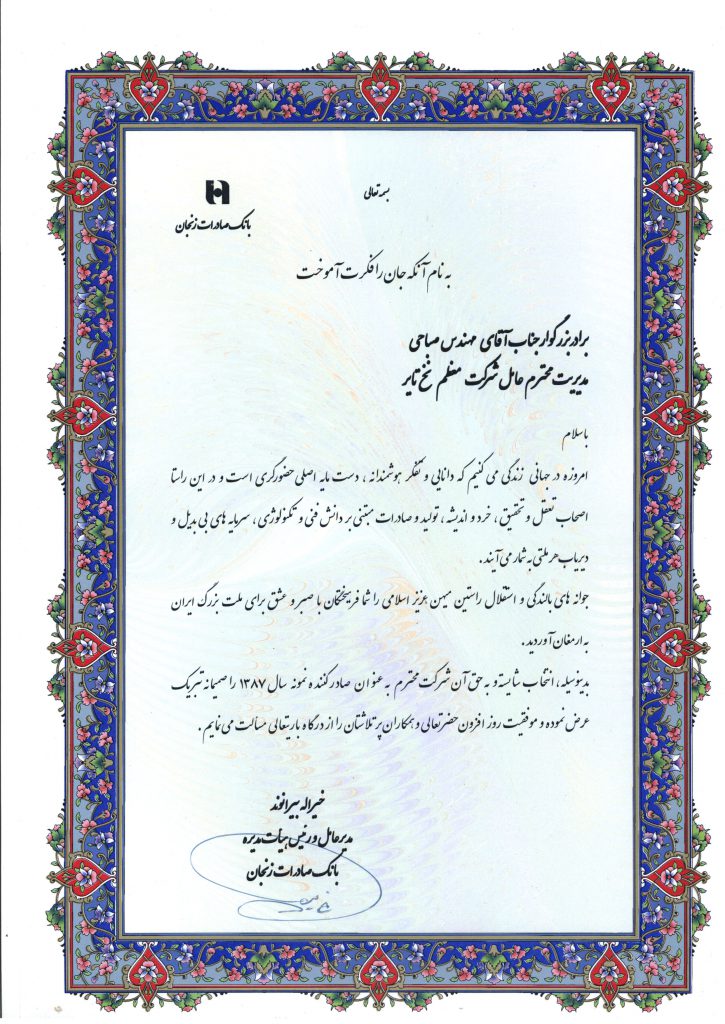 بسمه تعالی
بانک صادرات زنجان
به نام آنکه جان را فکرت آموخت
برادر بزرگوار جناب آقای مهندس صباحی
مدیریت محترم عامل شرکت معظم نخ تایر
با سلام
امروزه در جهانی زندگی می کنیم که دانایی و تفکر هوشمندانه ، دست مایه اصلی حضورگری است و در این راستا
اصحاب تعقل و تحقیق ، خرد و اندیشه ، تولید و صادرات مبتنی بر دانش فنی و تکنولوژی ، سرمایه های بی بدیل و
دیریاب هر ملتی به شمار می آیند .
جوانه های بالندگی و استقلال راستین میهن عزیز اسلامی را شما فرهیختگان با صبر و عشق برای ملت بزرگ ایران
به ارمغان آوردید .
بدینوسیله ، انتخاب شایسته و به حق آن شرکت محترم به عنوان صادر کننده نمونه سال ۱۳۸۷ را صمیمانه تبریک
عرض نموده و موفقیت روز افزون حضرتعالی و همکاران پر تلاشتان را از درگاه باریتعالی مسألت می نمایم .
خیراله بیرانوند
مدیر عامل و رئیس هیات مدیره
بانک صادرات زنجان